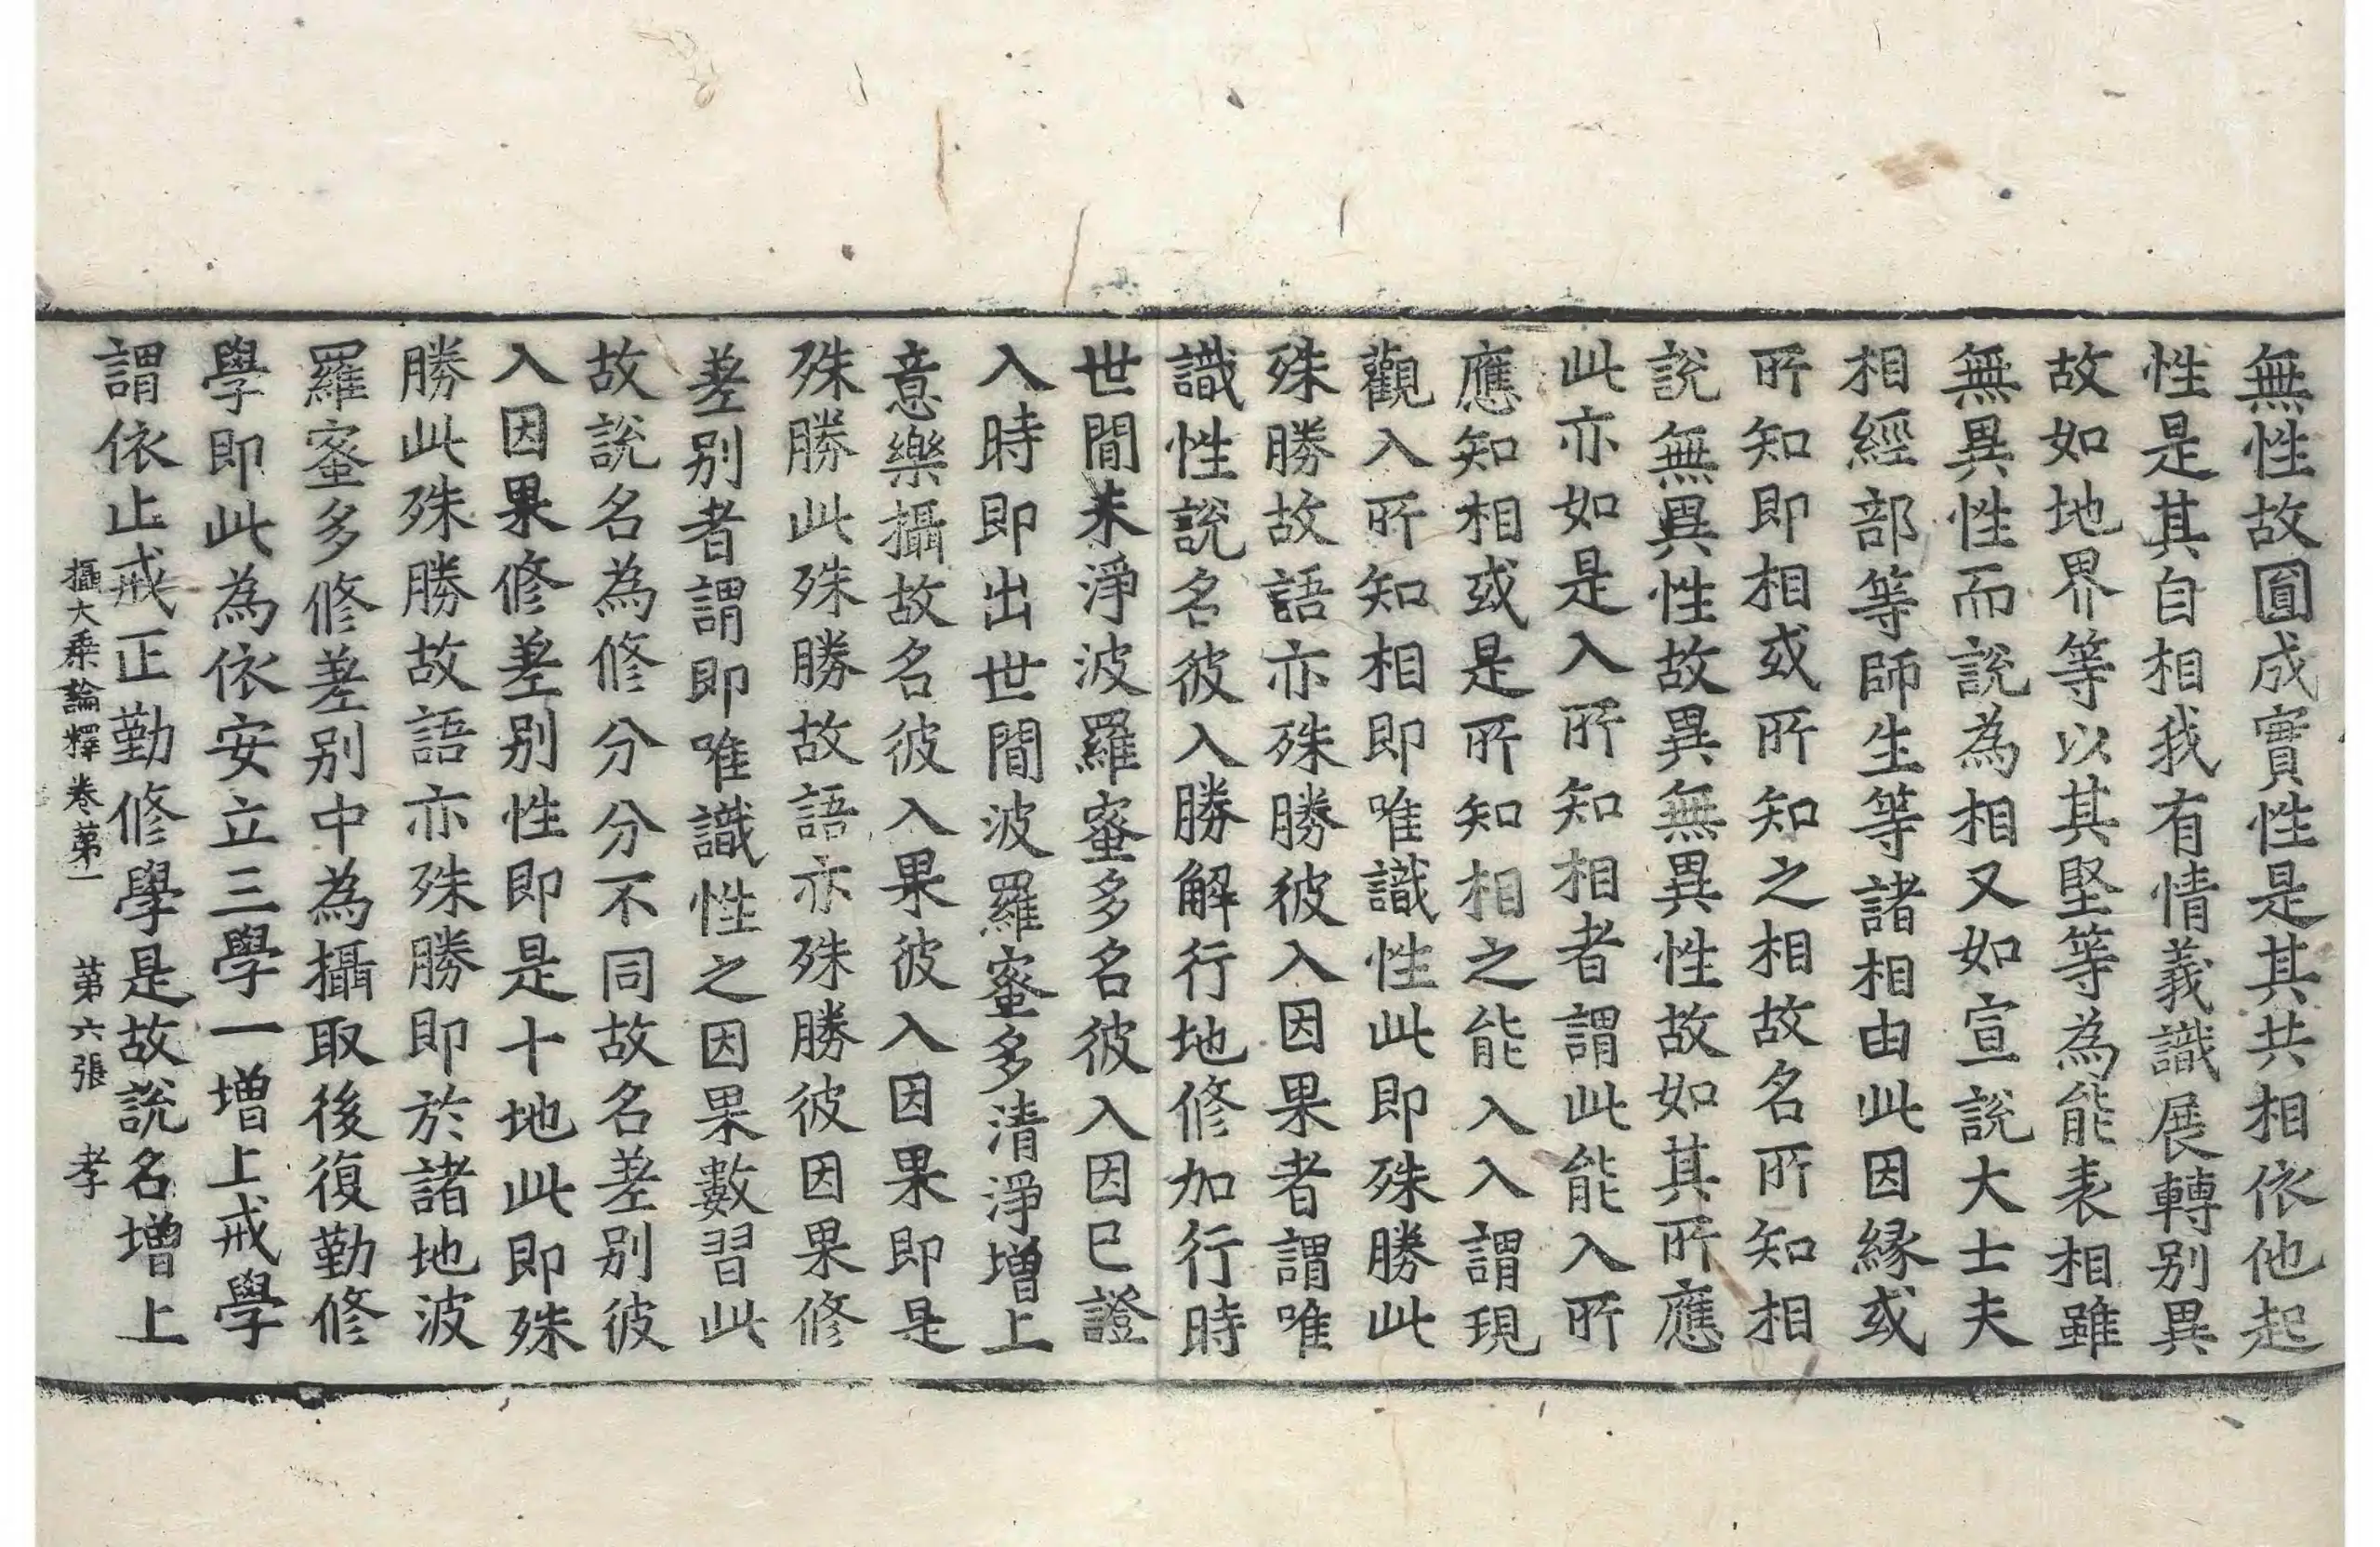 無性故圎成實性是其共相依他起
性是其自相我有情義識展轉别異
故如地界等以其堅等為能表相雖
無異性而說為相又如宣說大士夫
相經部等師生等諸相由此因緣或
所知即相或所知之相故名所知相
說無異性故異無異性故如其所應
此亦如是入所知相者謂此能入所
應知相或是所知相之能入入謂現
觀入所知相即唯識性此即殊勝此
殊勝故語亦殊勝彼入因果者謂唯
識性說名彼入勝解行地修加行時
世間未淨波羅蜜多名彼入因巳證
入時即出世間波羅蜜多清淨增上
意樂攝故名彼入果彼入因果即是
殊勝此殊勝故語亦殊勝彼因果修
差别者謂即唯識性之因果數習此
故說名為修分分不同故名差别彼
入因果修差别性即是十地此即殊
勝此殊勝故語亦殊勝即於諸地波
羅蜜多修差别中為攝取後復勤修
學即此為依安立三學一增上戒學
謂依止戒正勤修學是故說名增上
攝大乘論釋卷苐一 第六張 孝